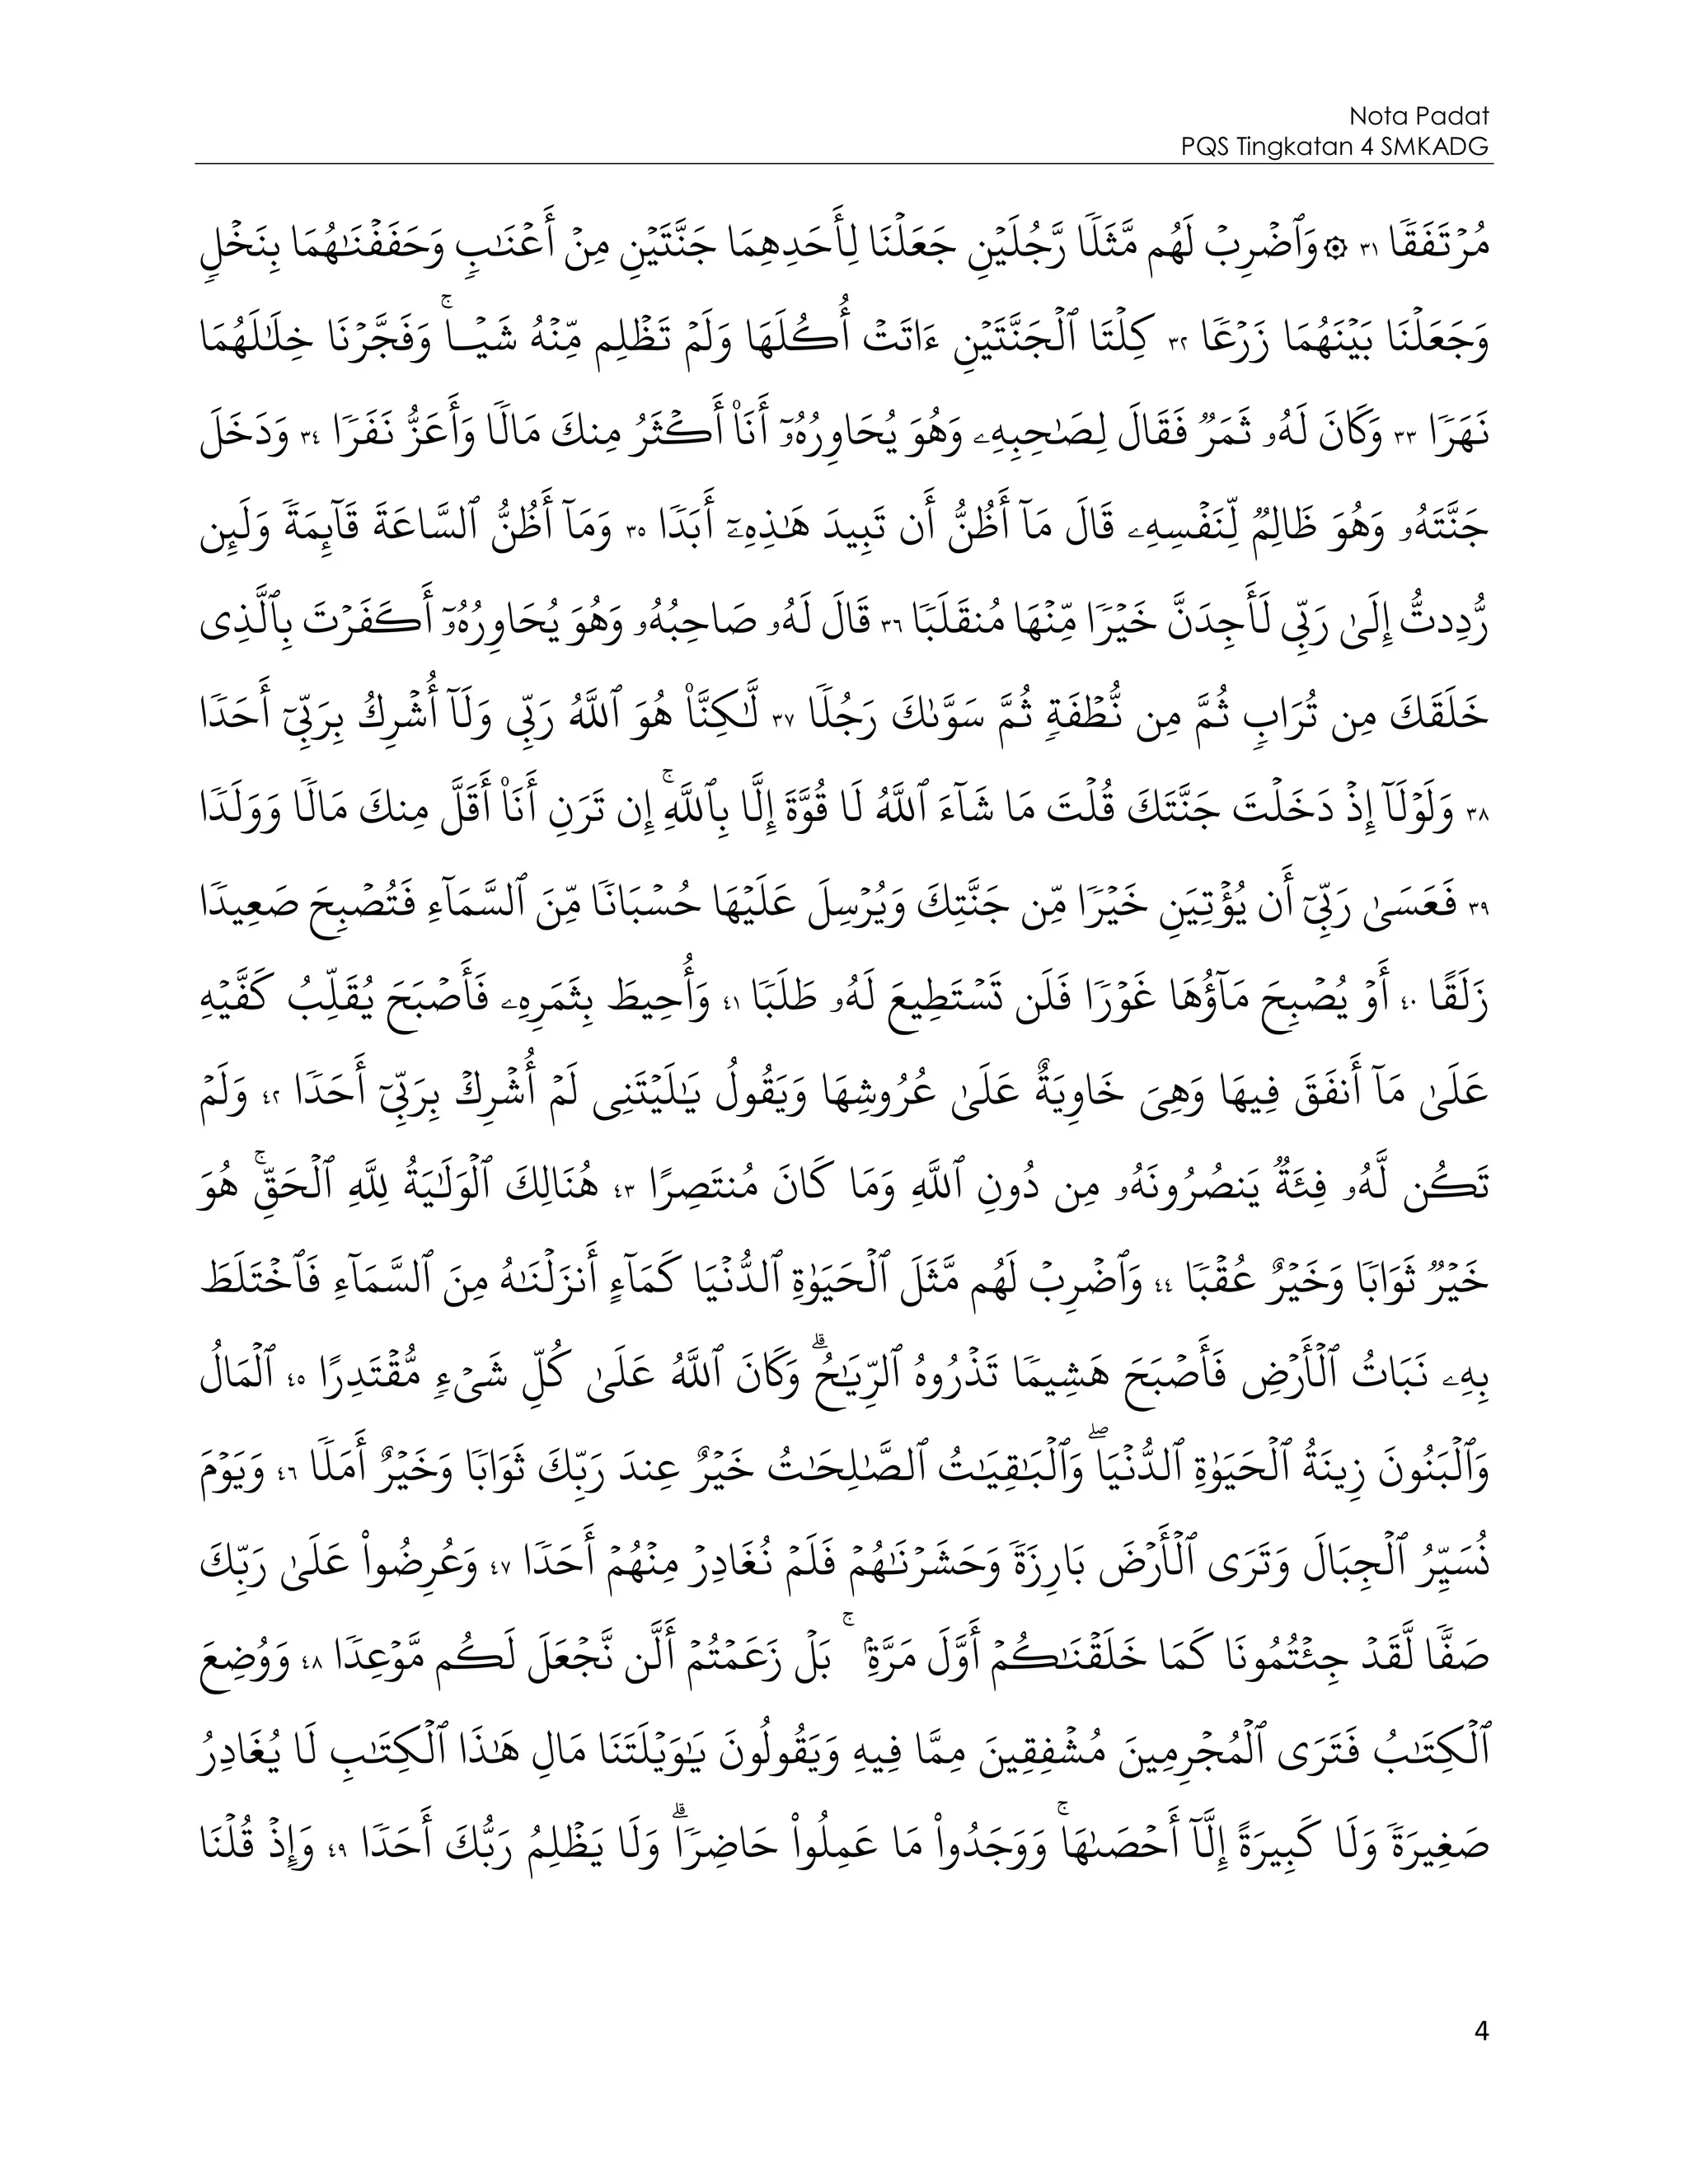 Nota Padat
PQS Tingkatan 4 SMKADG
مُرۡتَفَقٗا ٣١ ۞ وَٱضۡرِبۡ لَهُم مَّثَلٗا رَّجُلَيۡنِ جَعَلۡنَا لِأَحَدِهِمَا جَنَّتَيۡنِ مِنۡ أَعۡنَٰبٖ وَحَفَفۡنَٰهُمَا بِنَخۡلٖ
وَجَعَلۡنَا بَيۡنَهُمَا زَرۡعٗا ٣٢ كِلۡتَا ٱلۡجَنَّتَيۡنِ ءَاتَتۡ أُكُلَهَا وَلَمۡ تَظۡلِم مِّنۡهُ شَيۡـٔٗاۚ وَفَجَّرۡنَا خِلَٰلَهُمَا
نَهَرٗا ٣٣ وَكَانَ لَهُۥ ثَمَرٞ فَقَالَ لِصَٰحِبِهِۦ وَهُوَ يُحَاوِرُهُۥٓ أَنَا۠ أَكۡثَرُ مِنكَ مَالٗا وَأَعَزُّ نَفَرٗا ٣٤ وَدَخَلَ
جَنَّتَهُۥ وَهُوَ ظَالِمٞ لِّنَفۡسِهِۦ قَالَ مَآ أَظُنُّ أَن تَبِيدَ هَٰذِهِۦٓ أَبَدٗا ٣٥ وَمَآ أَظُنُّ ٱلسَّاعَةَ قَآئِمَةٗ وَلَئِن
رُّدِدتُّ إِلَىٰ رَبِّي لَأَجِدَنَّ خَيۡرٗا مِّنۡهَا مُنقَلَبٗا ٣٦ قَالَ لَهُۥ صَاحِبُهُۥ وَهُوَ يُحَاوِرُهُۥٓ أَكَفَرۡتَ بِٱلَّذِي
خَلَقَكَ مِن تُرَابٖ ثُمَّ مِن نُّطۡفَةٖ ثُمَّ سَوَّىٰكَ رَجُلٗا ٣٧ لَّٰكِنَّا۠ هُوَ ٱللَّهُ رَبِّي وَلَآ أُشۡرِكُ بِرَبِّيٓ أَحَدٗا
٣٨ وَلَوۡلَآ إِذۡ دَخَلۡتَ جَنَّتَكَ قُلۡتَ مَا شَآءَ ٱللَّهُ لَا قُوَّةَ إِلَّا بِٱللَّهِۚ إِن تَرَنِ أَنَا۠ أَقَلَّ مِنكَ مَالٗا وَوَلَدٗا
٣٩ فَعَسَىٰ رَبِّيٓ أَن يُؤۡتِيَنِ خَيۡرٗا مِّن جَنَّتِكَ وَيُرۡسِلَ عَلَيۡهَا حُسۡبَانٗا مِّنَ ٱلسَّمَآءِ فَتُصۡبِحَ صَعِيدٗا
زَلَقًا ٤٠ أَوۡ يُصۡبِحَ مَآؤُهَا غَوۡرٗا فَلَن تَسۡتَطِيعَ لَهُۥ طَلَبٗا ٤١ وَأُحِيطَ بِثَمَرِهِۦ فَأَصۡبَحَ يُقَلِّبُ كَفَّيۡهِ
عَلَىٰ مَآ أَنفَقَ فِيهَا وَهِيَ خَاوِيَةٌ عَلَىٰ عُرُوشِهَا وَيَقُولُ يَٰلَيۡتَنِي لَمۡ أُشۡرِكۡ بِرَبِّيٓ أَحَدٗا ٤٢ وَلَمۡ
تَكُن لَّهُۥ فِئَةٞ يَنصُرُونَهُۥ مِن دُونِ ٱللَّهِ وَمَا كَانَ مُنتَصِرًا ٤٣ هُنَالِكَ ٱلۡوَلَٰيَةُ لِلَّهِ ٱلۡحَقِّۚ هُوَ
خَيۡرٞ ثَوَابٗا وَخَيۡرٌ عُقۡبٗا ٤٤ وَٱضۡرِبۡ لَهُم مَّثَلَ ٱلۡحَيَوٰةِ ٱلدُّنۡيَا كَمَآءٍ أَنزَلۡنَٰهُ مِنَ ٱلسَّمَآءِ فَٱخۡتَلَطَ
بِهِۦ نَبَاتُ ٱلۡأَرۡضِ فَأَصۡبَحَ هَشِيمٗا تَذۡرُوهُ ٱلرِّيَٰحُۗ وَكَانَ ٱللَّهُ عَلَىٰ كُلِّ شَيۡءٖ مُّقۡتَدِرًا ٤٥ ٱلۡمَالُ
وَٱلۡبَنُونَ زِينَةُ ٱلۡحَيَوٰةِ ٱلدُّنۡيَاۖ وَٱلۡبَٰقِيَٰتُ ٱلصَّٰلِحَٰتُ خَيۡرٌ عِندَ رَبِّكَ ثَوَابٗا وَخَيۡرٌ أَمَلٗا ٤٦ وَيَوۡمَ
نُسَيِّرُ ٱلۡجِبَالَ وَتَرَى ٱلۡأَرۡضَ بَارِزَةٗ وَحَشَرۡنَٰهُمۡ فَلَمۡ نُغَادِرۡ مِنۡهُمۡ أَحَدٗا ٤٧ وَعُرِضُواْ عَلَىٰ رَبِّكَ
صَفّٗا لَّقَدۡ جِئۡتُمُونَا كَمَا خَلَقۡنَٰكُمۡ أَوَّلَ مَرَّةِۭۚ بَلۡ زَعَمۡتُمۡ أَلَّن نَّجۡعَلَ لَكُم مَّوۡعِدٗا ٤٨ وَوُضِعَ
ٱلۡكِتَٰبُ فَتَرَى ٱلۡمُجۡرِمِينَ مُشۡفِقِينَ مِمَّا فِيهِ وَيَقُولُونَ يَٰوَيۡلَتَنَا مَالِ هَٰذَا ٱلۡكِتَٰبِ لَا يُغَادِرُ
صَغِيرَةٗ وَلَا كَبِيرَةً إِلَّآ أَحۡصَىٰهَاۚ وَوَجَدُواْ مَا عَمِلُواْ حَاضِرٗاۗ وَلَا يَظۡلِمُ رَبُّكَ أَحَدٗا ٤٩ وَإِذۡ قُلۡنَا
4